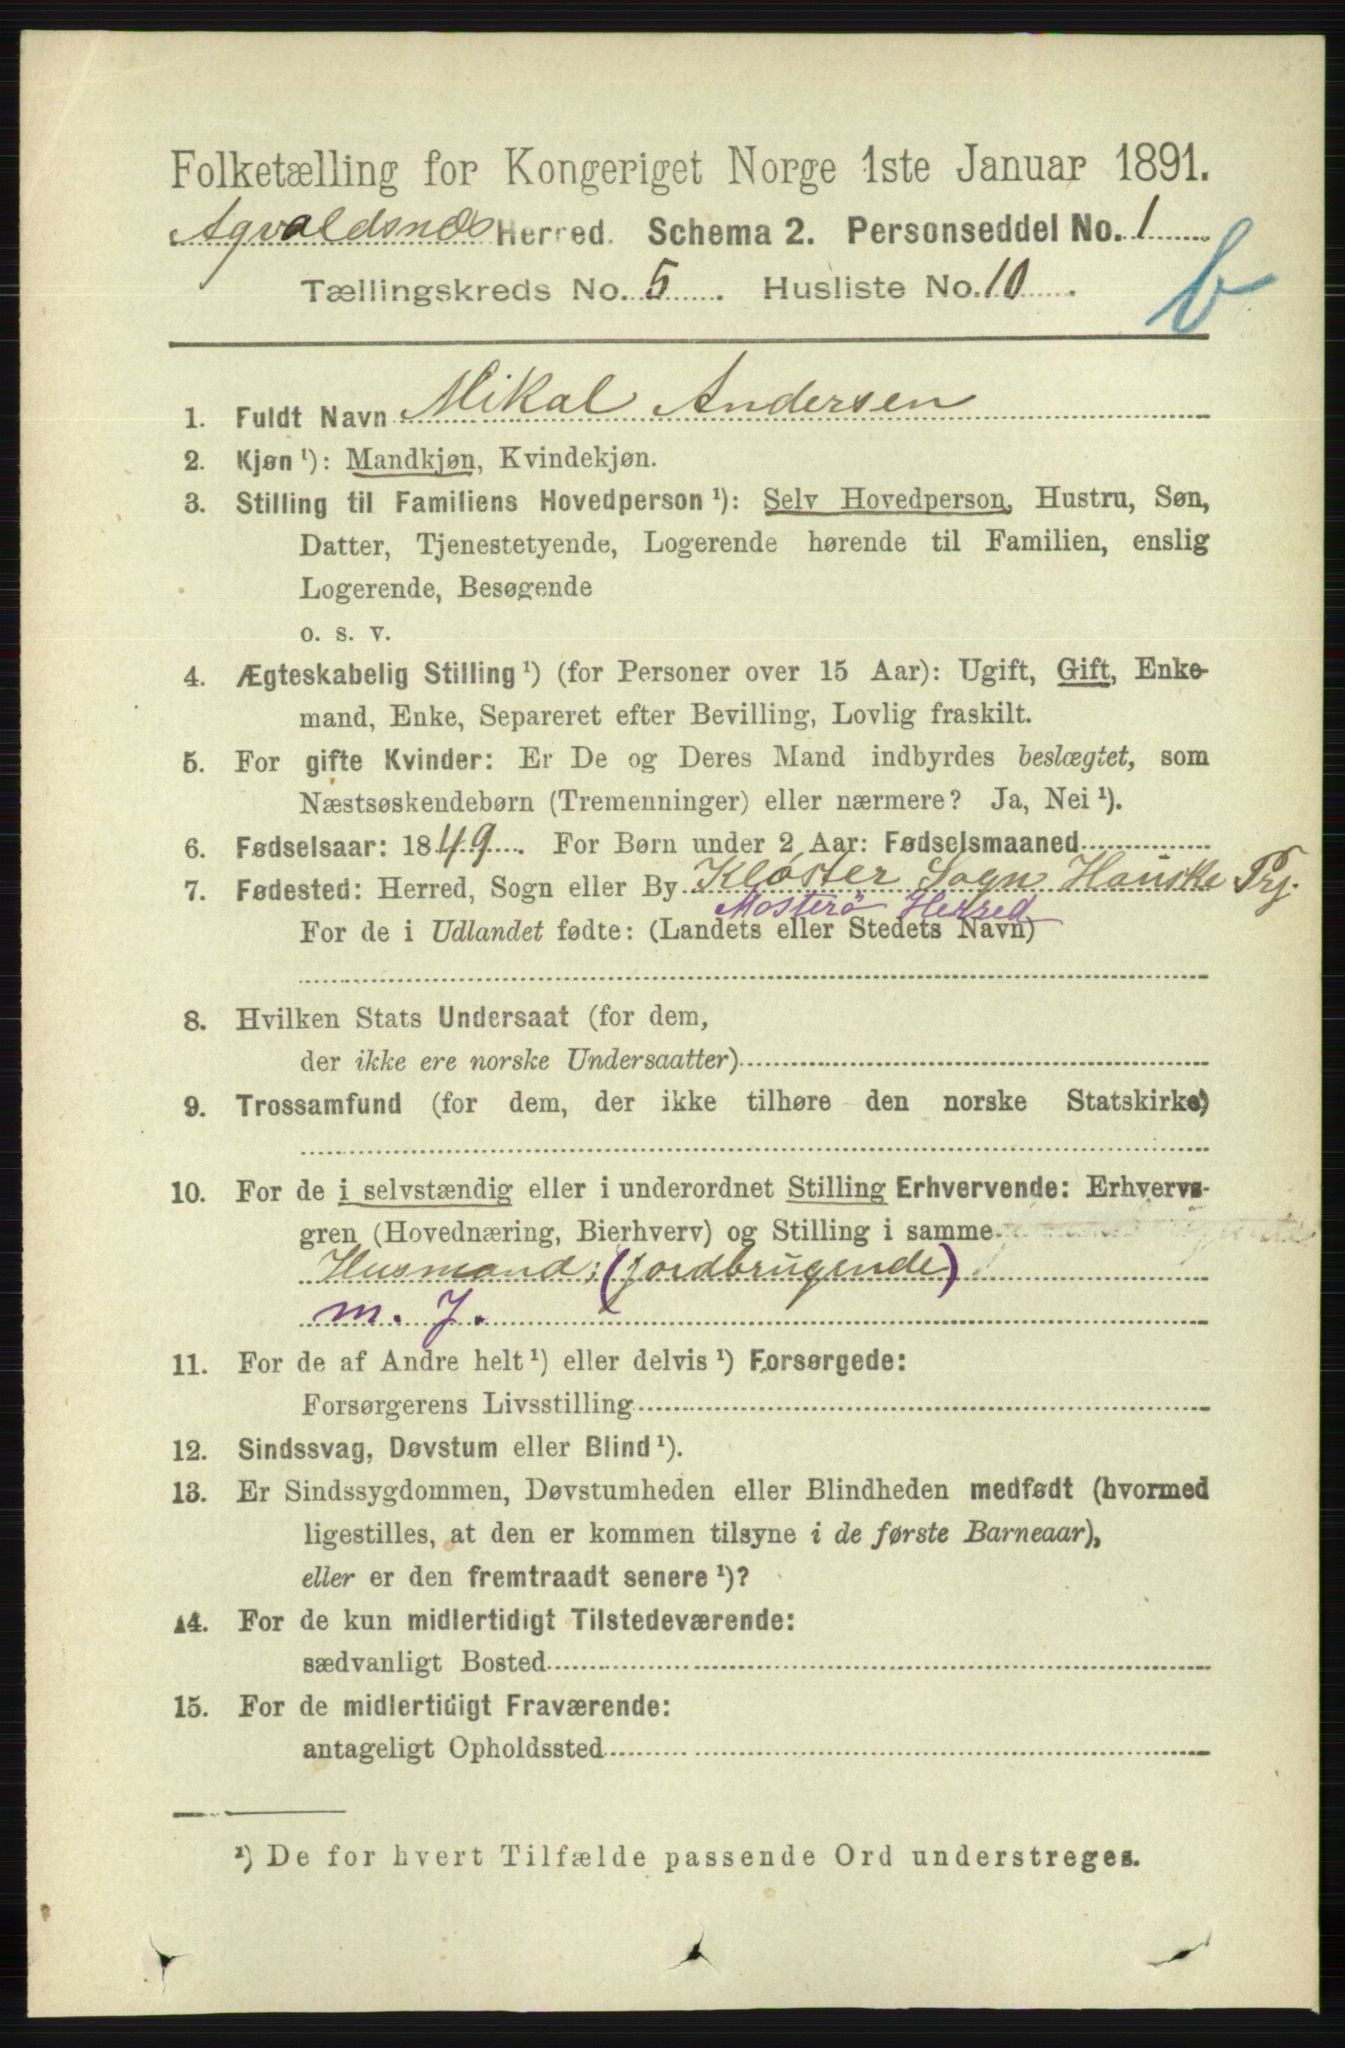 Folketælling for Kongeriget Norge 1ste Januar 1891.
Agvaldsnæs Herred. Schema 2. Personseddel No. 1
Tællingskreds No. 5. Husliste No. 10.
b
1. Fuldt Navn Mikal Andersen
2. Kjøn ¹): Mandkjøn, Kvindekjøn.
3. Stilling til Familiens Hovedperson ¹): Selv Hovedperson, Hustru, Søn,
Datter, Tjenestetyende, Logerende hørende til Familien, enslig
Logerende, Besøgende
o. s. v.
4. Ægteskabelig Stilling ¹) (for Personer over 15 Aar): Ugift, Gift, Enke-
mand, Enke, Separeret efter Bevilling, Lovlig fraskilt.
5. For gifte Kvinder: Er De og Deres Mand indbyrdes beslægtet, som
Næstsøskendebørn (Tremenninger) eller nærmere? Ja, Nei ¹).
6. Fødselsaar: 1849. For Børn under 2 Aar: Fødselsmaaned
7. Fødested: Herred, Sogn eller By Kloster Sogn Hauske Prj.
Mosterö Herred
For de i Udlandet fødte: (Landets eller Stedets Navn)
8. Hvilken Stats Undersaat (for dem,
der ikke ere norske Undersaatter)
9. Trossamfund (for dem, der ikke tilhøre den norske Statskirke)
10. For de i selvstændig eller i underordnet Stilling Erhvervende: Erhvervs-
gren (Hovednæring, Bierhverv) og Stilling i samme
Husmand; (jordbrugende)
m. J.
11. For de af Andre helt ¹) eller delvis ¹) Forsørgede:
Forsørgerens Livsstilling
12. Sindssvag, Døvstum eller Blind ¹).
13. Er Sindssygdommen, Døvstumheden eller Blindheden medfødt (hvormed
ligestilles, at den er kommen tilsyne i de første Barneaar),
eller er den fremtraadt senere ¹)?
14. For de kun midlertidigt Tilstedeværende:
sædvanligt Bosted
15. For de midlertidigt Fraværende:
antageligt Opholdssted
¹) De for hvert Tilfælde passende Ord understreges.